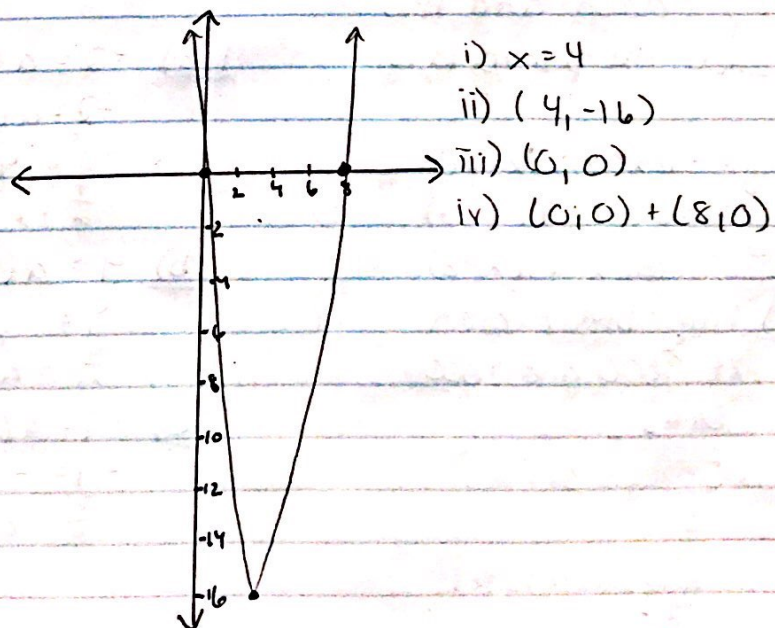 i) x = 4
ii) (4, -16)
iii) (0, 0)
iv) (0, 0) + (8, 0)
2 4 6 8
-2
-4
-6
-8
-10
-12
-14
-16